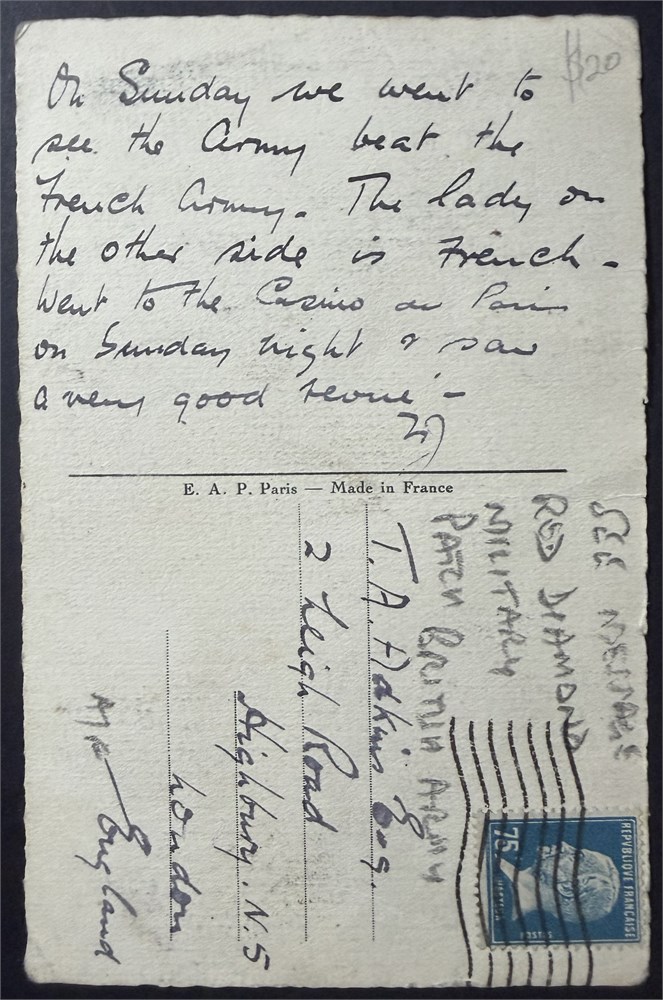 $20
On Sunday we went to
see the Army beat the
French Army. The lady on
the other side is French -
Went to the Casino de Paris
on Sunday night & saw
a very good revue -
E. A. P. Paris — Made in France
SEE MESSAGE
RED DIAMOND
MILITARY
PATCH BRITISH ARMY
T. A. Adkins Esq.
2 Leigh Road
Highbury. N. 5
London
England
REPUBLIQUE FRANCAISE
75c
PASTEUR
POSTES